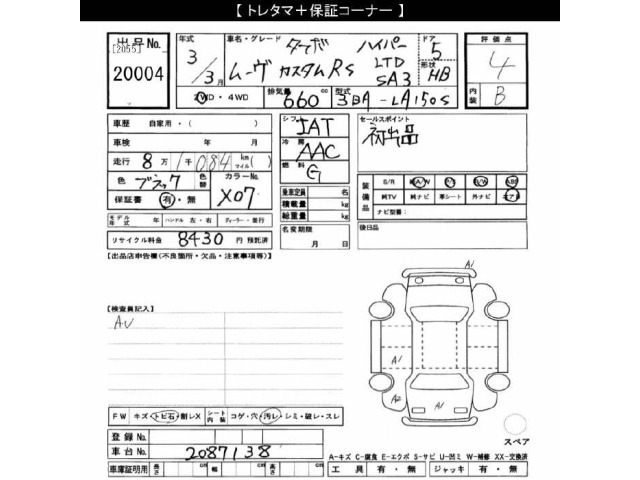 【 トレタマ＋保証コーナー 】
出品No.
[2055]
20004
年式 3/3月
車名・グレード ターボ ハイパー
ムーヴ カスタムRS LTD SA3
ドア 5
形状 HB
評価点 4
内装 B
2WD・4WD
排気量 660 cc
型式 3BA-LA150S
車歴 自家用・( )
車検 年 月
走行 8万1千084 km(マイル)
色 ブラック
色替
カラーNo. X07
保証書 有・無
モデル年式 年 ハンドル 左・右 ディーラー・並行
リサイクル料金 8430 円 預託済
シフト IAT
冷房 AAC
燃料 G
乗車定員 名
積載量 kg
総重量 kg
名変期限 月 日
セールスポイント
初出品
装備品
S/R 純A/W P/S P/W ABS
純TV 純ナビ 革シート 外ナビ エアB
ナビ型番:
後日品
【出品店申告欄(不良箇所・欠品・注意事項等)】
【検査員記入】
AU
A1
A1
A2
A1
スペア
FW キズ・トビ石・割レX シート内装 コゲ・穴・汚レ・シミ・破レ・スレ
登録No.
車台No. 2087138
車庫証明用 長さ cm 幅 cm 高さ cm
A-キズ C-腐食 E-エクボ S-サビ U-凹ミ W-補修 XX-交換済
工具 有・無 ジャッキ 有・無